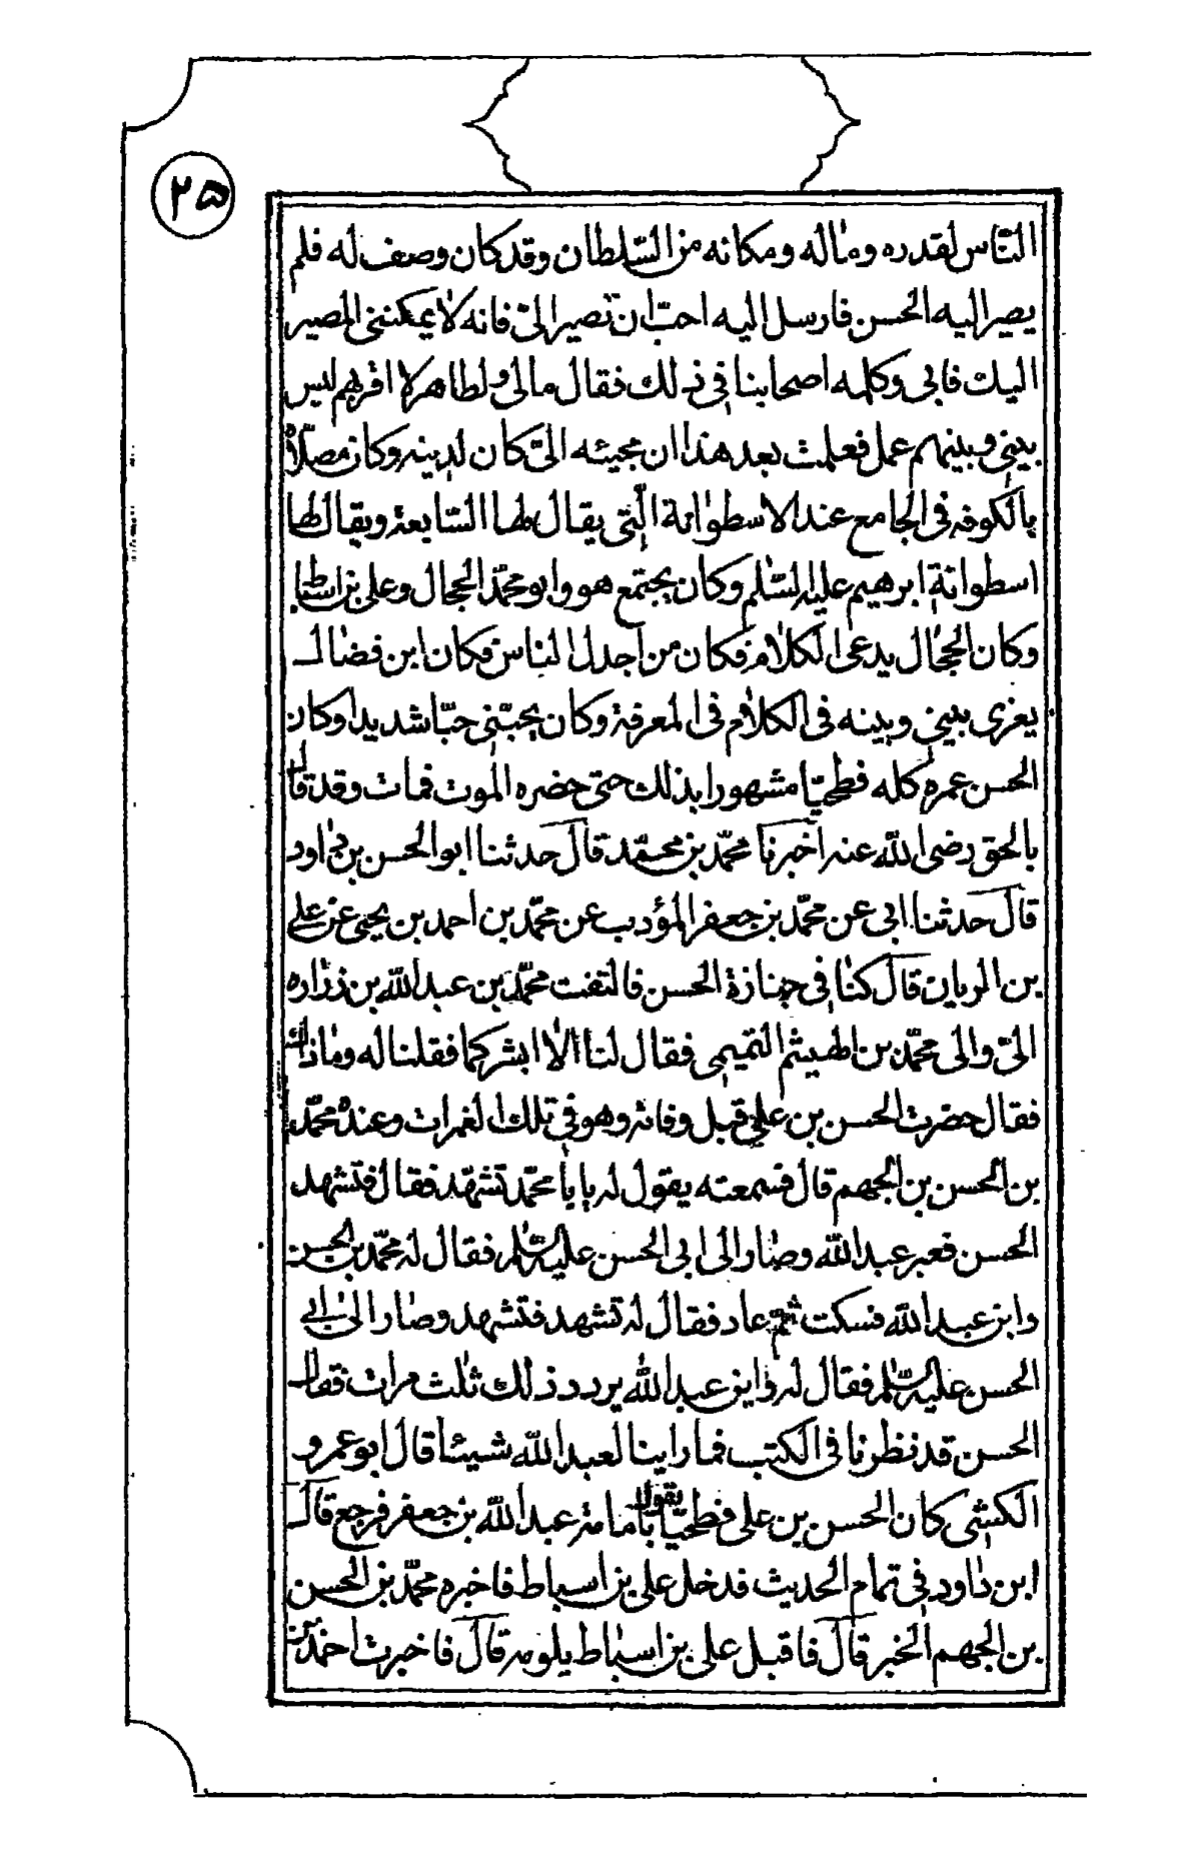 ۲۵
النّاس لقدره وماٰله ومكانه من السّلطان وقد كان وصف له فلم
يصير اليه الحسن فارسل اليه احبّ ان تصير الىّ فانه لاٰ يمكننى المصير
اليك فابى وكلمه اصحابنا فى ذلك فقال مالى ولطاهر لا اقربهم ليس
بينى وبينهم عمل فعلمت بعد هذا ان مجيئه الىّ كان لدينه وكان مصلّاه
بالكوفه فى الجامع عند الاسطوٰانة الّتى يقال لها السّابعة ويقال لها
اسطوانة ابرهيم عليه السّلم وكان يجتمع هو وابو محمّد الحجال وعلى بن اسباط
وكان الحجّال يدعى الكلاٰم فكان من اجدل الناس فكان ابن فضاٰل
يغرى بينى وبينه فى الكلاٰم فى المعرفة وكان يحبّنى حبّا شديدا وكان
الحسن عمره كله فطحيّا مشهورا بذلك حتى حضره الموت فمات وقد قال
بالحق رضى اللّه عنه اخبرنا محمّد بن محمّد قال حدثنا ابو الحسن بن دٰاود
قال حدثنا ابى عن محمّد بن جعفر المؤدب عن محمّد بن احمد بن يحيى عن على
بن الريان قال كنّا فى جنازة الحسن فالتفت محمّد بن عبد اللّه بن زرٰاره
الىّ والى محمّد بن الهيثم التميمى فقال لنا الاٰ ابشركما فقلنا له وماٰ ذاك
فقال حضرت الحسن بن على قبل وفاته وهو فى تلك الغمرات وعنده محمّد
بن الحسن بن الجهم قال فسمعته يقول له يا باٰ محمّد تشهّد فقال فتشهد
الحسن فعبر عبد اللّه وصاٰر الى ابى الحسن عليه السّلم فقال له محمّد بن الحسن
وابن عبد اللّه فسكت ثم عاد فقال له تشهد فتشهد وصاٰر الى ابى
الحسن عليه السّلم فقال له واين عبد اللّه يردد ذلك ثلٰث مرات فقال
الحسن قد نظرنا فى الكتب فما راينا لعبد اللّه شيئا قال ابو عمرو
الكشى كان الحسن بن على فطحيّا يقول باٰمامة عبد اللّه بن جعفر فرجع قال
ابن داٰود فى تمام الحديث فدخل على بن اسباط فاخبره محمّد بن الحسن
بن الجهم الخبر قال فاقبل على بن اسباٰط يلومه قال فاخبرت احمد بن